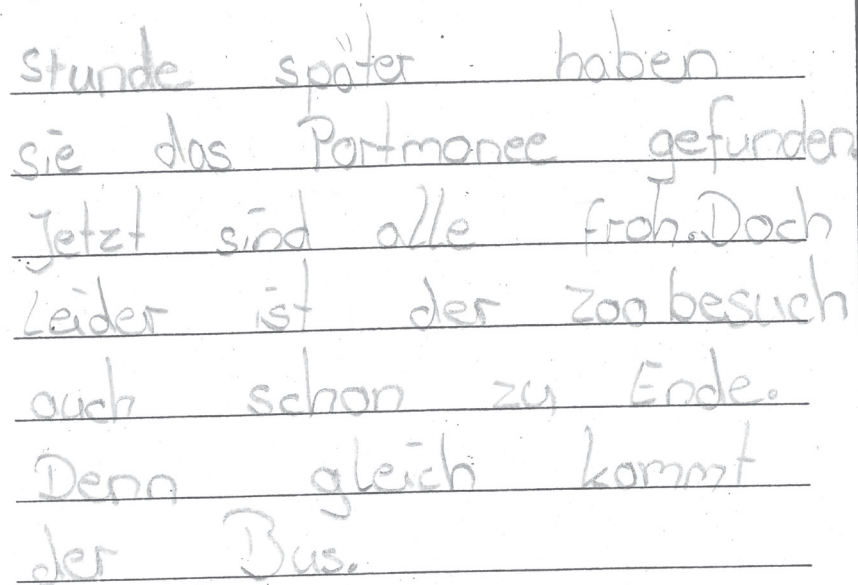 stunde später haben
sie das Portmonee gefunden.
Jetzt sind alle froh. Doch
Leider ist der zoobesuch
auch schon zu Ende.
Denn gleich kommt
der Bus.